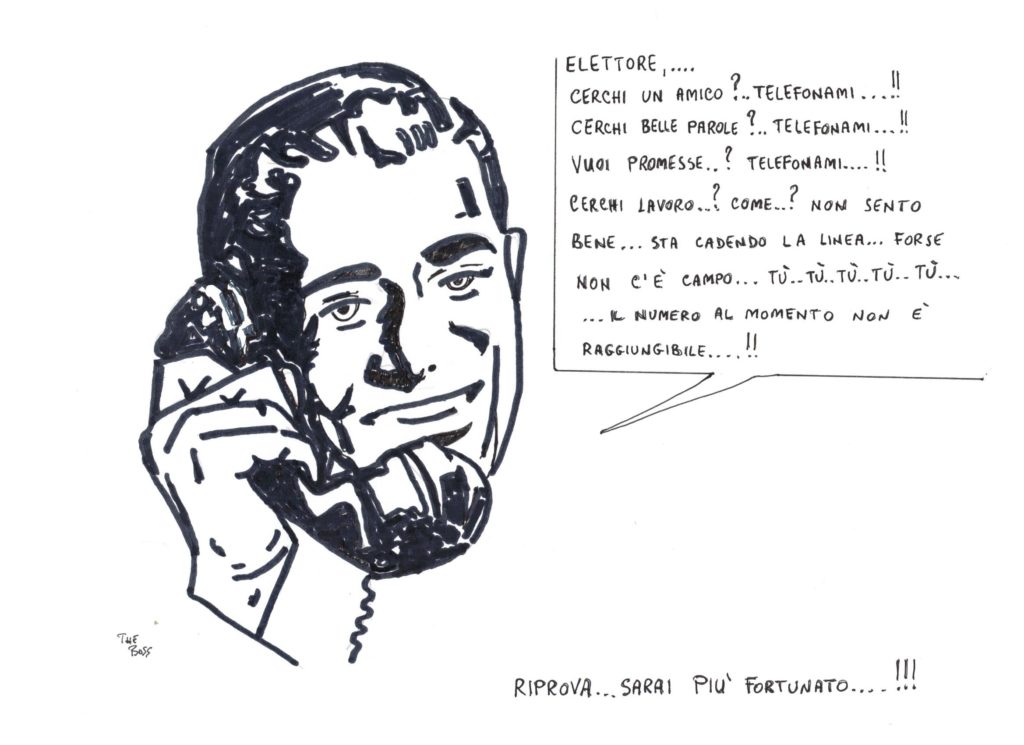 ELETTORE,....
CERCHI UN AMICO?..TELEFONAMI....!!
CERCHI BELLE PAROLE?.. TELEFONAMI...!!
VUOI PROMESSE..? TELEFONAMI....!!
CERCHI LAVORO..? COME..? NON SENTO
BENE... STA CADENDO LA LINEA... FORSE
NON C'È CAMPO... TÙ..TÙ..TÙ..TÙ..TÙ...
...IL NUMERO AL MOMENTO NON È
RAGGIUNGIBILE....!!
THE
BOSS
RIPROVA...SARAI PIU' FORTUNATO....!!!